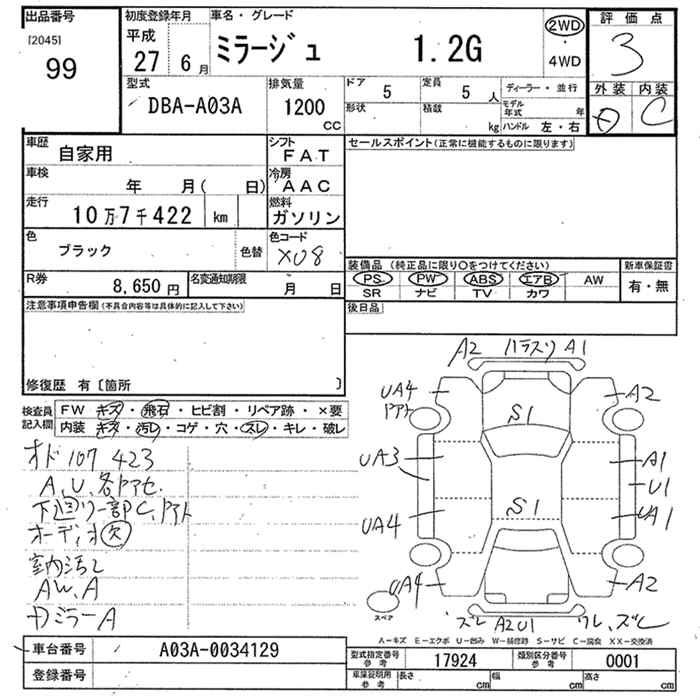 出品番号
[2045]
99
初度登録年月
平成
27年 6月
車名・グレード
ミラージュ 1.2G
2WD
・
4WD
評価点
3
外装 内装
D C
型式
DBA-A03A
排気量
1200 CC
ドア 5
定員 5 人
ディーラー・並行
形状
積載 kg
モデル年式 年
ハンドル 左・右
車歴
自家用
シフト
FAT
セールスポイント(正常に機能するものに限ります)
車検
年 月( 日)
冷房
AAC
走行
10万7千422 km
燃料
ガソリン
色
ブラック
色替
色コード
X08
装備品 (純正品に限り○をつけてください)
PS PW ABS エアB AW
SR ナビ TV カワ
新車保証書
有・無
R券
8,650円
名変通知期限
月 日
後日品
注意事項申告欄(不具合内容等は具体的に記入して下さい)
修復歴 有〔箇所 〕
検査員記入欄
FW キズ・飛石・ヒビ割・リペア跡・×要
内装 キズ・汚レ・コゲ・穴・スレ・キレ・破レ
オド 107423
A、U、各
下廻り一部C、
オーディオ欠
室内汚レ
AW.A
ミラーA
A2 ハラスリ A1
UA4
A2
S1
UA3
A1
U1
S1
UA4
UA1
UA4
A2
スペア
ズレ A2U1 ワレ、ズレ
A-キズ E-エクボ U-凹み W-補修跡 S-サビ C-腐食 XX-交換済
車台番号
A03A-0034129
登録番号
型式指定番号
参考
17924
類別区分番号
参考
0001
車庫証明用
参考
長さ cm
幅 cm
高さ cm